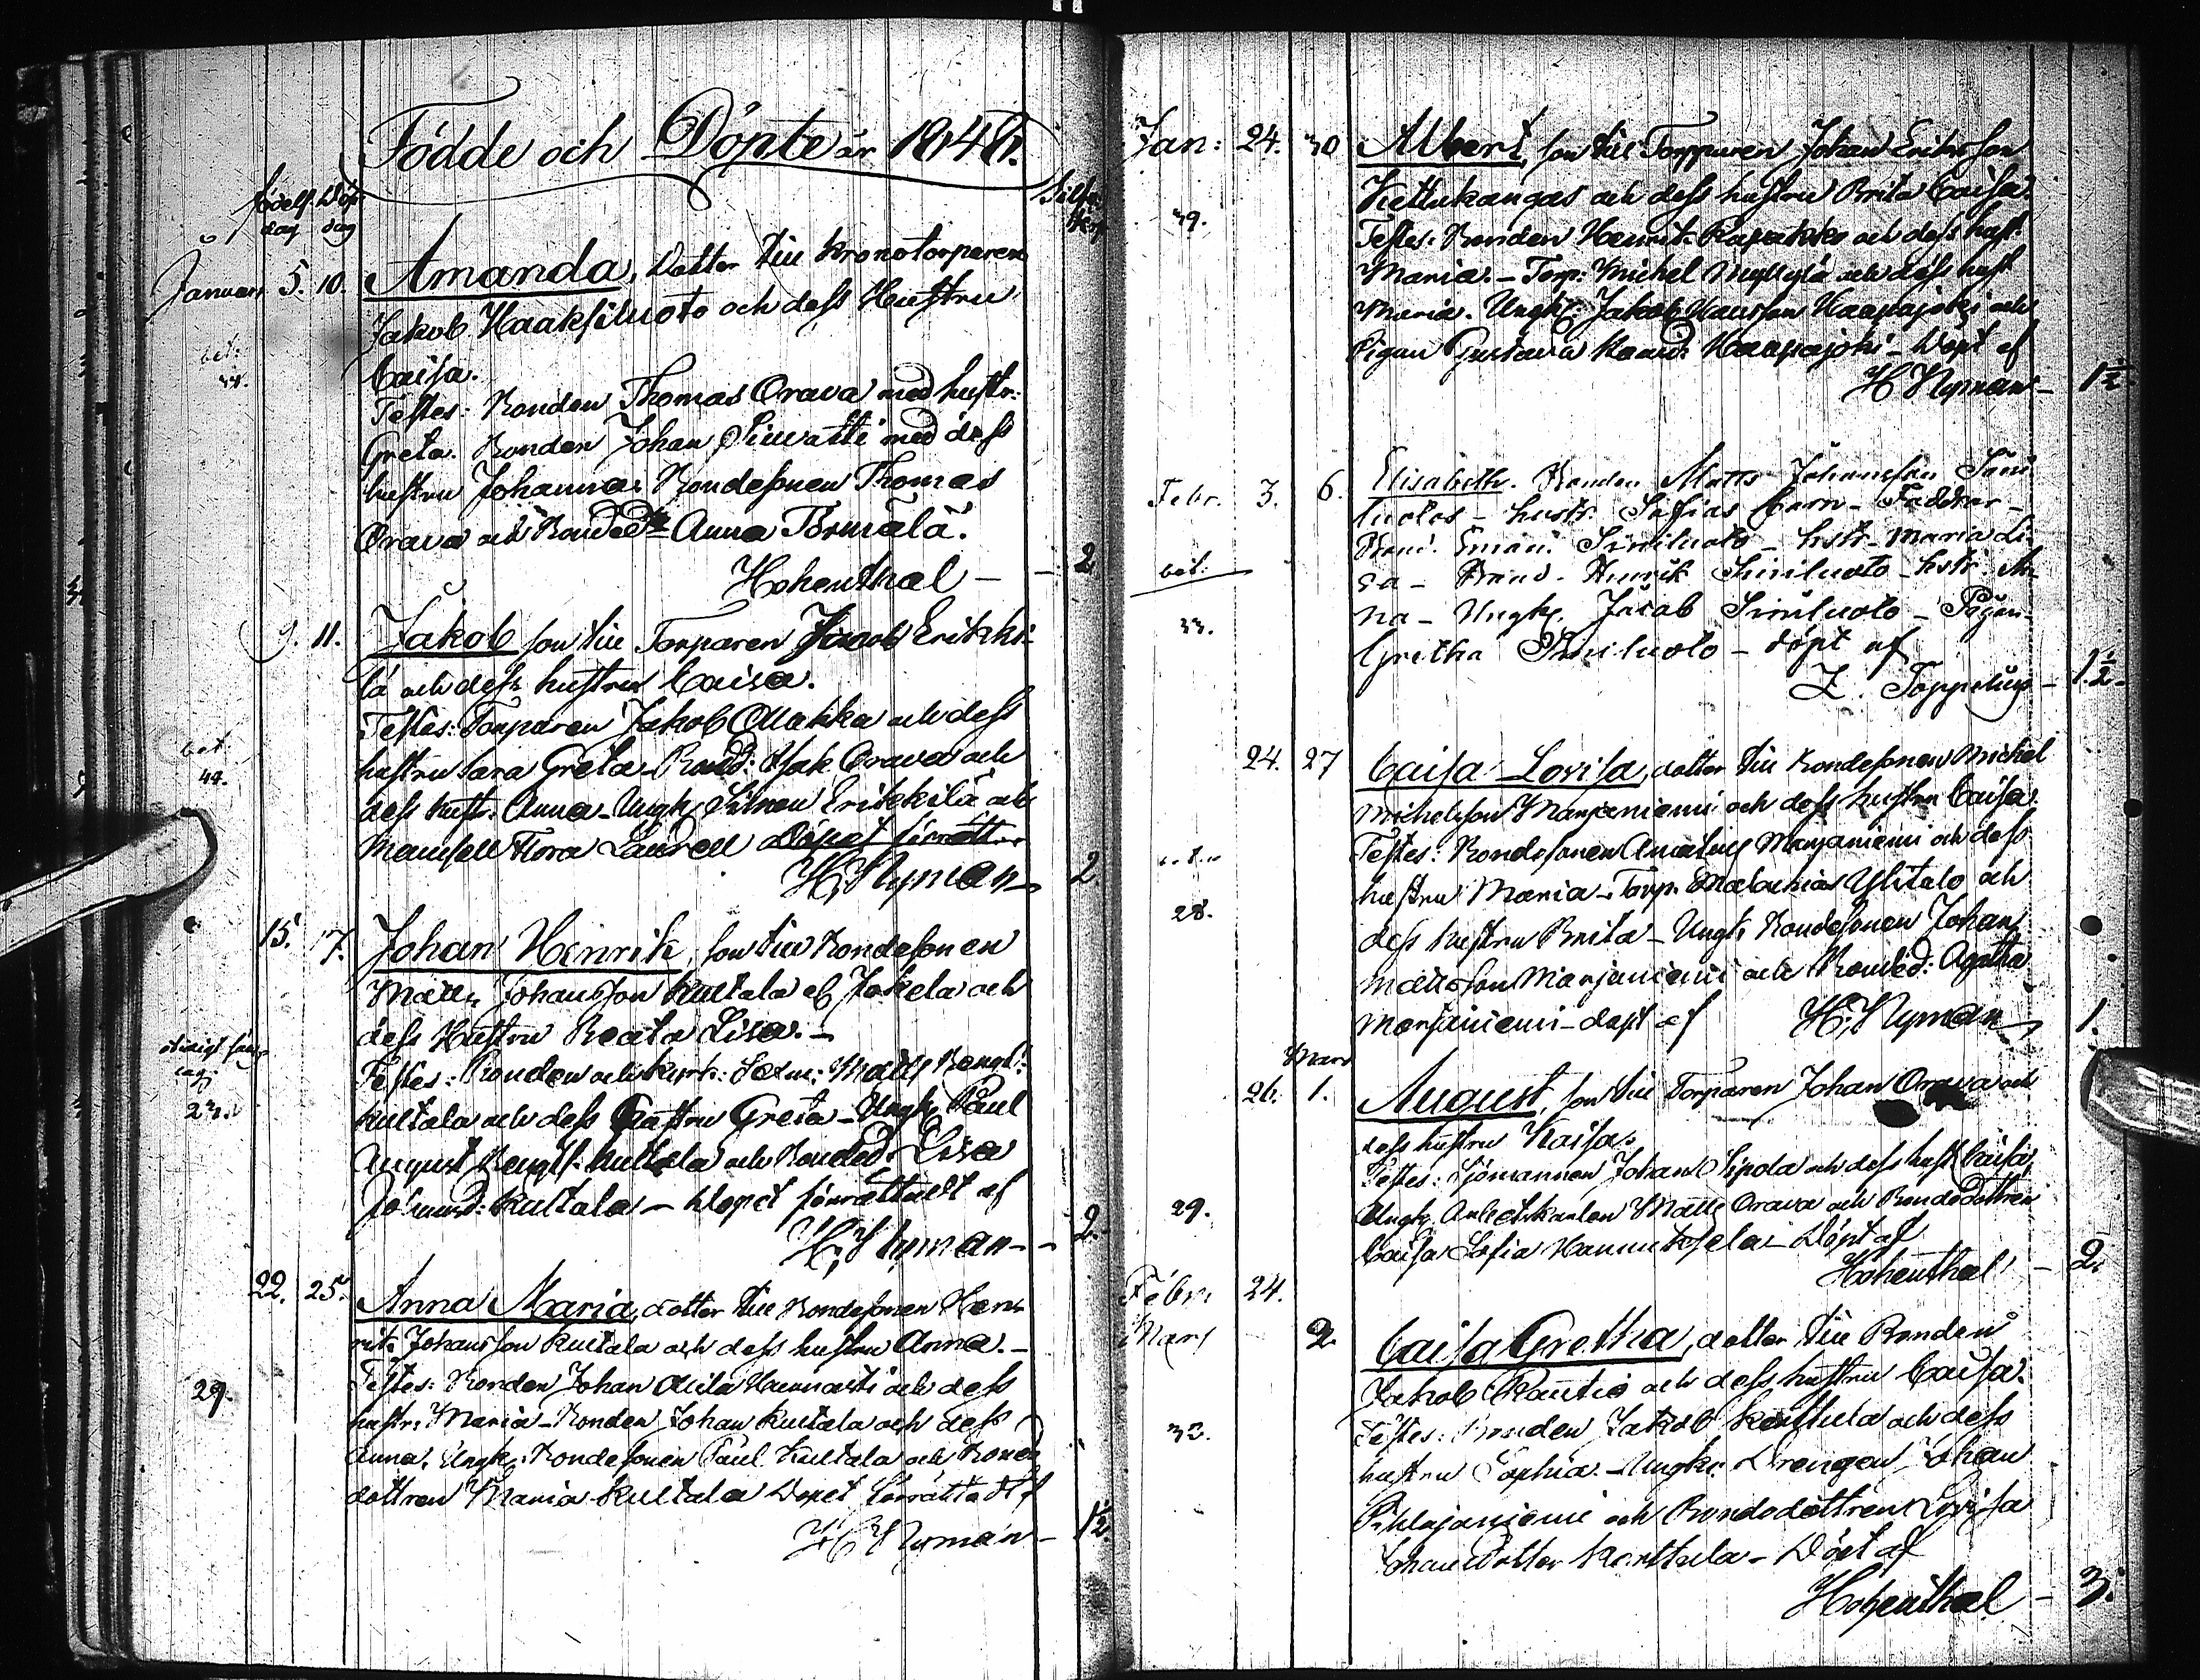 Födde och Döpte år 1848.
födels Döp
dag dag
Silfver
Januari 5. 10. Amanda, dotter till Kronotorparen
Jakob Haaksiluoto och dess Hustru
bet: Caisa.
44.
Testes: Bonden Thomas Orava med hustr:
Greta. Bonden Johan med dess
hustru Johanna. Bondesonen Thomas
Orava och Bonded. Anna Törmälä.
Hohenthal — 2
9. 11. Jakob son till Torparen Jacob Erikki-
lä och dess hustru Caisa.
Testes: Torparen Jakob Ollakka och dess
bet. hustru Sara Greta. Bond: Isak Orava och
44. dess hustr. Anna. Ungk. Simon Erikkilä och
Mamsell Flora Laurell
H. Nyman 2.
15. 17. Johan Henrik, son till Bondesonen
Matts Johansson Kultala el. Jokela och
dess Hustru Beata Lisa. —
Testes: Bonden och Matts Bengts:
Kultala och dess Hustru Greta — Ungk. Paul
August Bengts: Kultala och Bonded. Lisa
Kultala — Dopet förrättadt af
H. Nyman — 2.
22. 25. Anna Maria, dotter till Bondesonen Hen-
rik Johansson Kultala och dess hustru Anna. —
Testes: Bonden Johan och dess
29. hustr. Maria — Bonden Johan Kultala och dess
Anna. Ungk. Bondesonen Paul Kultala och Bonde
dottren Maria Kultala Dopet förrättadt
H. Nyman — 1½
Jan: 24. 30 Albert, son till Torpparen Johan Eriksson
Kettukangas och dess hustru Brita Caisa.
39. Testes: Bonden Henrik och dess hust.
Maria. — Torp: Michel Myllylä och dess hust
Maria. Ungk: Jakob Hansson Haapajoki och
Pigan Gustava Haapajoki — Döpt af
H. Nyman — 1½
Febr. 3. 6. Elisabeth. Bonden Matts Johansson Sini
luotos — hustr. Sofias barn — Faddrar —
Bond. Siniluoto — hstr. Maria Li-
bet: sa — Bond. Henrik Siniluoto — hstr. An-
33. na — Ungk. Jacob Siniluoto — Pigan
Gretha Siniluoto — döpt af
Z. Toppelius — 1½
24. 27 Caisa Lovisa, dotter till Bondesonen Michel
Michelsson Marjaniemi och dess hustru Caisa.
Testes: Bondesonen Marjaniemi och dess
hustru Maria — Torp. Malachias Ylitalo och
28. dess hustru Brita — Ungk. Bondesonen Johan
Mattsson Marjaniemi och Bonded: Agatha
Marjaniemi — döpt af H. Nyman 1.
Mars
26. 1. August, son till Torparen Johan Orava och
dess hustru Kaisa.
Testes: Sjömannen Johan Sipola och dess hust. Caisa,
29. Ungk. Arbetskarlen Matts Orava och Bondedottren
Caisa Sofia Hannuksela — Döpt af
Hohenthal — 2.
Febr. 24.
Mars 2. Caisa Gretha, dotter till Bonden
Jakob Rautio och dess hustru Caisa.
32. Testes: Bonden Jakob Karttula och dess
hustru Sophia. — Ungk. Drengen Johan
Pihlajaniemi och Bondedottren Lovisa
Johansdotter Karttula — Döpt af
Hohenthal — 3.